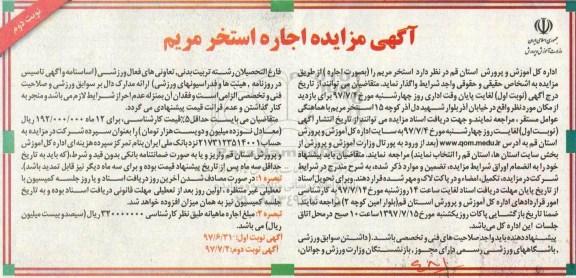 نوبت دوم
جمهوری اسلامی ایران
وزارت آموزش و پرورش
آگهی مزایده اجاره استخر مریم
اداره کل آموزش و پرورش استان قم در نظر دارد استخر مریم را (بصورت اجاره) از طریق
مزایده به اشخاص حقیقی و حقوقی واجد شرایط واگذار نماید. متقاضیان می توانند از تاریخ
درج آگهی (نوبت اول) لغایت پایان وقت اداری روز چهارشنبه مورخ ۹۷/۷/۴ برای بازدید
از مکان مورد نظر واقع در خیابان آذر بلوار شهید دل آذر کوچه ۱۵ استخر مریم با هماهنگی
عوامل مستقر، مراجعه نمایند و جهت دریافت اسناد مزایده می توانند از تاریخ انتشار آگهی
(نوبت اول) لغایت روز چهارشنبه مورخ ۹۷/۷/۴ به سایت اداره کل آموزش و پرورش
استان قم به آدرس www.qom.medu.ir (بعد از ورود به پورتال وزارت آموزش و پرورش از
بخش سایت استان ها، استان قم را انتخاب نمایند) مراجعه نمایند. متقاضیان باید پیشنهاد
خود را به انضمام اوراق شرایط مزایده، تضمین و موارد ذکر شده، به شرح مندرج در شرایط
شرکت در مزایده، تکمیل، امضاء و در پاکت لاک و مهر شده قرار دهند. برای تحویل اسناد
از تاریخ پایان مهلت دریافت اسناد لغایت ساعت ۱۴ روز شنبه مورخ ۹۷/۷/۱۴ به کارشناسی
امور قراردادهای اداره کل آموزش و پرورش استان قم (بلوار امین کوچه ۲) مراجعه نمایند.
ضمنا تاریخ بازگشایی پاکات روز یکشنبه مورخ ۱۳۹۷/۷/۱۵ ساعت ۱۰ صبح در محل اتاق
جلسات این اداره کل می باشد.
پیشنهاددهنده باید واجد صلاحیت های فنی و تخصصی باشد. (داشتن سوابق ورزشی
، باشگاههای ورزشی رسمی دارای مجوز، بازنشستگان وزارت ورزش و جوانان،
فارغ التحصیلان رشته تربیت بدنی، تعاونی های فعال ورزشی (اساسنامه و آگهی تاسیس
در روزنامه، هیئت ها و فدراسیونهای ورزشی) ارائه مدارک دال بر سوابق ورزشی و صلاحیت
فنی و تخصصی الزامی است و فقدان آن بمنزله عدم احراز شرایط لازم می باشد و منجر به
کنار گذاشتن و عدم قرائت قیمت پیشنهادی می گردد.
متقاضیان می بایست حداقل ۵٪ قیمت کارشناسی، برای ۱۲ ماه ۱۹۲/۰۰۰/۰۰۰ ریال
(معادل نوزده میلیون و دویست هزار تومان) را بعنوان سپرده شرکت در مزایده به
حساب ۲۱۷۳۱۳۳۵۱۴۰۰۱ نزد بانک ملی ایران بنام تمرکز سپرده هزینه ای اداره کل آموزش
و پرورش استان قم واریز و یا به صورت ضمانتنامه بانکی بدون قید و شرط، (که باید به تاریخ
حداقل سه ماه پس از تاریخ پیشنهاد قیمت بوده و برای سه ماه دیگر نیز قابل تمدید باشد).
تبصره ۱: در صورت مصادف شدن آخرین روز دریافت اسناد و یا روز جلسه کمیسیون با
تعطیلی غیر منتظره، اولین روز بعد از تعطیلی مهلت قانونی دریافت اسناد بوده و به تاریخ
جلسه کمیسیون نیز به همان میزان افزوده خواهد شد.
تبصره ۲: مبلغ اجاره ماهیانه طبق نظر کارشناسی ۳۲۰۰۰۰۰۰۰ ریال (سیصد و بیست میلیون
ریال) می باشد.
آگهی نوبت اول: ۹۷/۶/۳۱
آگهی نوبت دوم: ۹۷/۷/۲